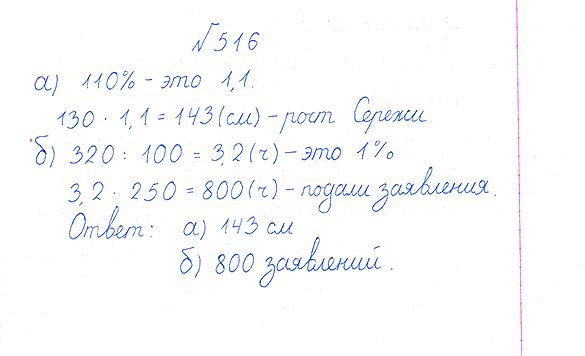 №516
а) 110% - это 1,1.
130 · 1,1 = 143 (см) - рост Сережи
б) 320 : 100 = 3,2 (ч) - это 1%
3,2 · 250 = 800 (ч) - подали заявления.
Ответ: а) 143 см
б) 800 заявлений.